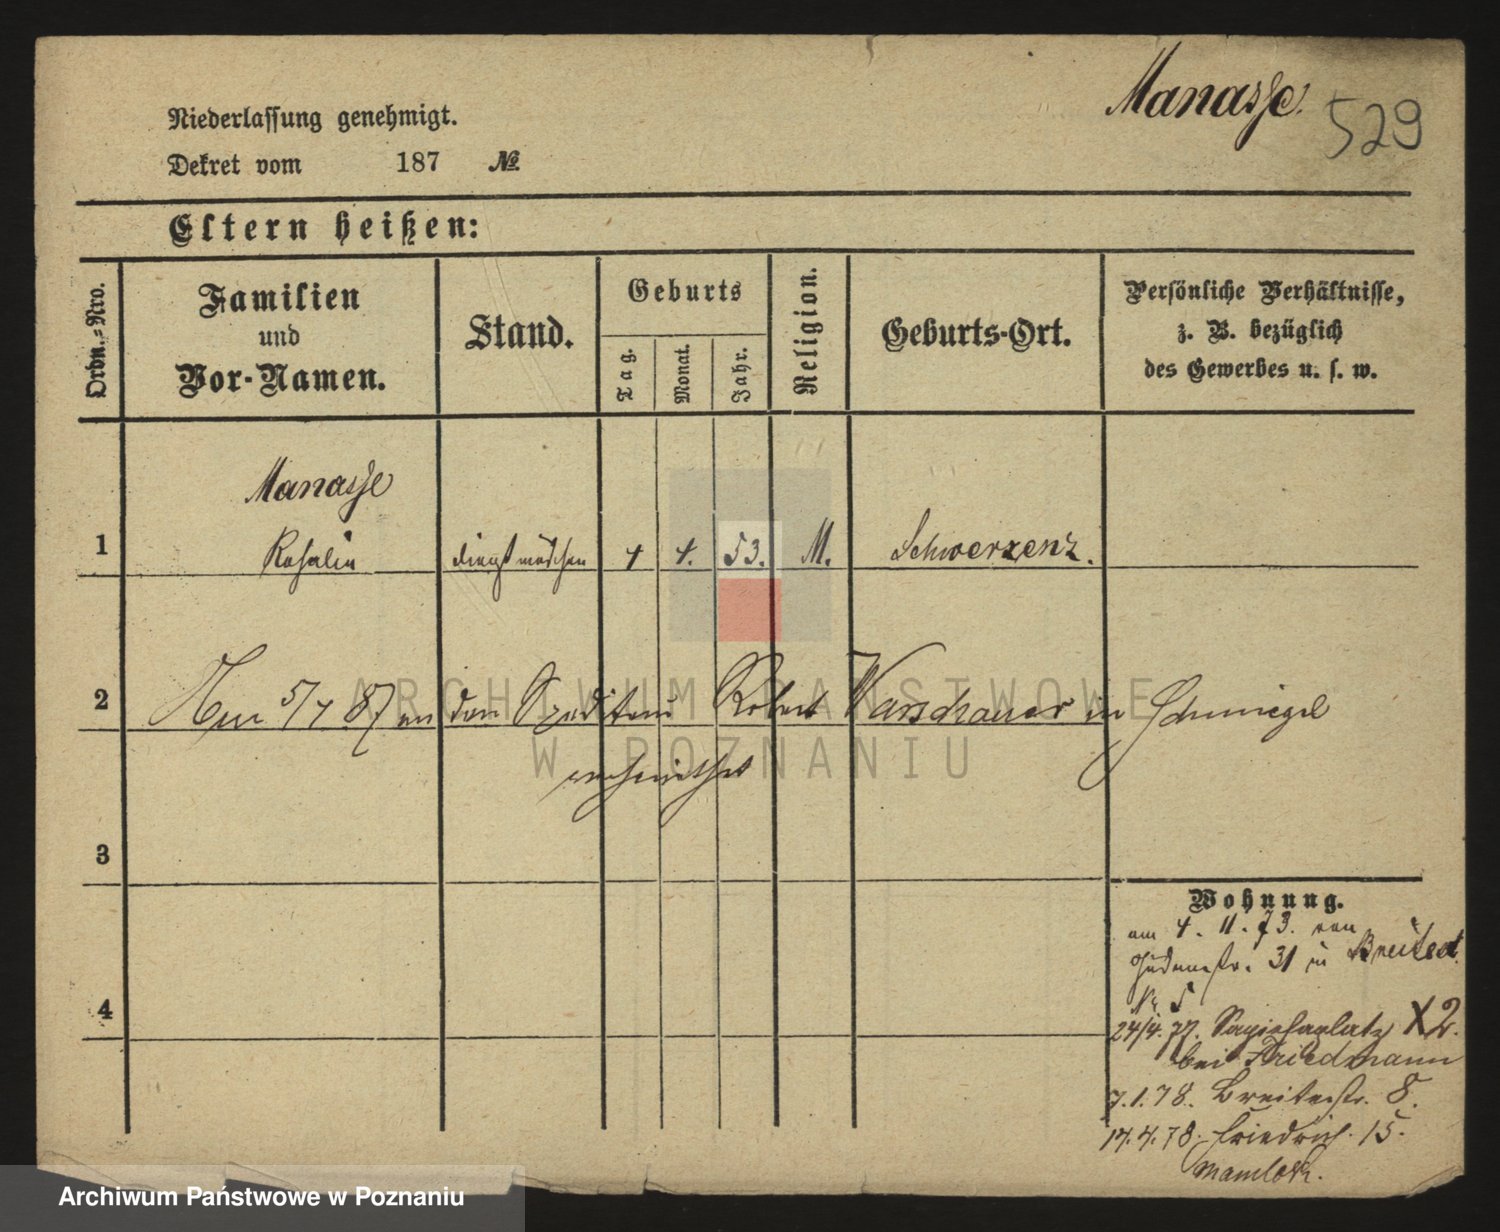 Manasse.
529
Niederlassung genehmigt.
Dekret vom 187 №
Eltern heißen:
Ordn.-Nro.
Familien
und
Vor-Namen.
Stand.
Geburts
Tag.
Monat.
Jahr.
Religion.
Geburts-Ort.
Persönliche Verhältnisse,
z. B. bezüglich
des Gewerbes u. s. w.
Manasse
1 Rosalie Dienstmädchen 4 4. 53. M. Schwerzenz.
2 5/7 87 an den Spediteur Robert Warschauer in Schmiegel
verheirathet
ARCHIWUM PAŃSTWOWE
W POZNANIU
3
4
Wohnung.
am 4. 11. 73. von
Judenstr. 31 in Breitest.
Nr 5
24/4. 77. Sapiehaplatz X2.
bei Friedmann
7.1.78. Breitestr. 8.
17.4.78. Friedrich. 15.
Mamlok.
Archiwum Państwowe w Poznaniu